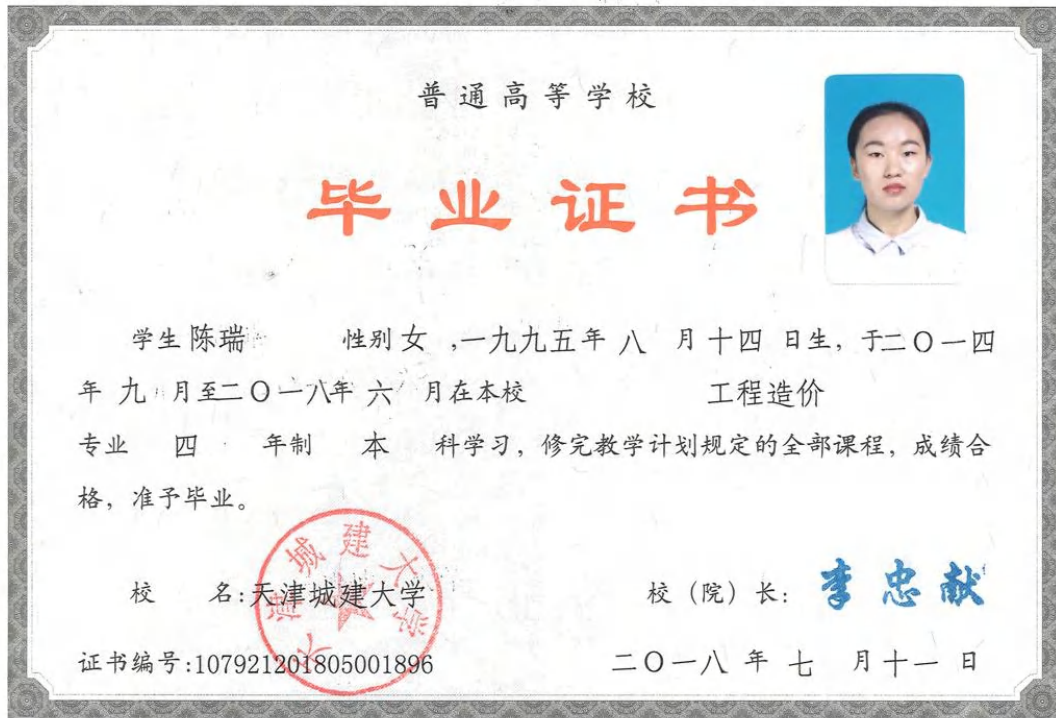 普通高等学校
毕业证书
学生陈瑞 性别女,一九九五年八月十四日生,于二〇一四
年九月至二〇一八年六月在本校 工程造价
专业 四 年制 本 科学习,修完教学计划规定的全部课程,成绩合
格,准予毕业。
天津城建大学
校 名:天津城建大学 校(院)长:李忠献
证书编号:107921201805001896 二〇一八年七月十一日